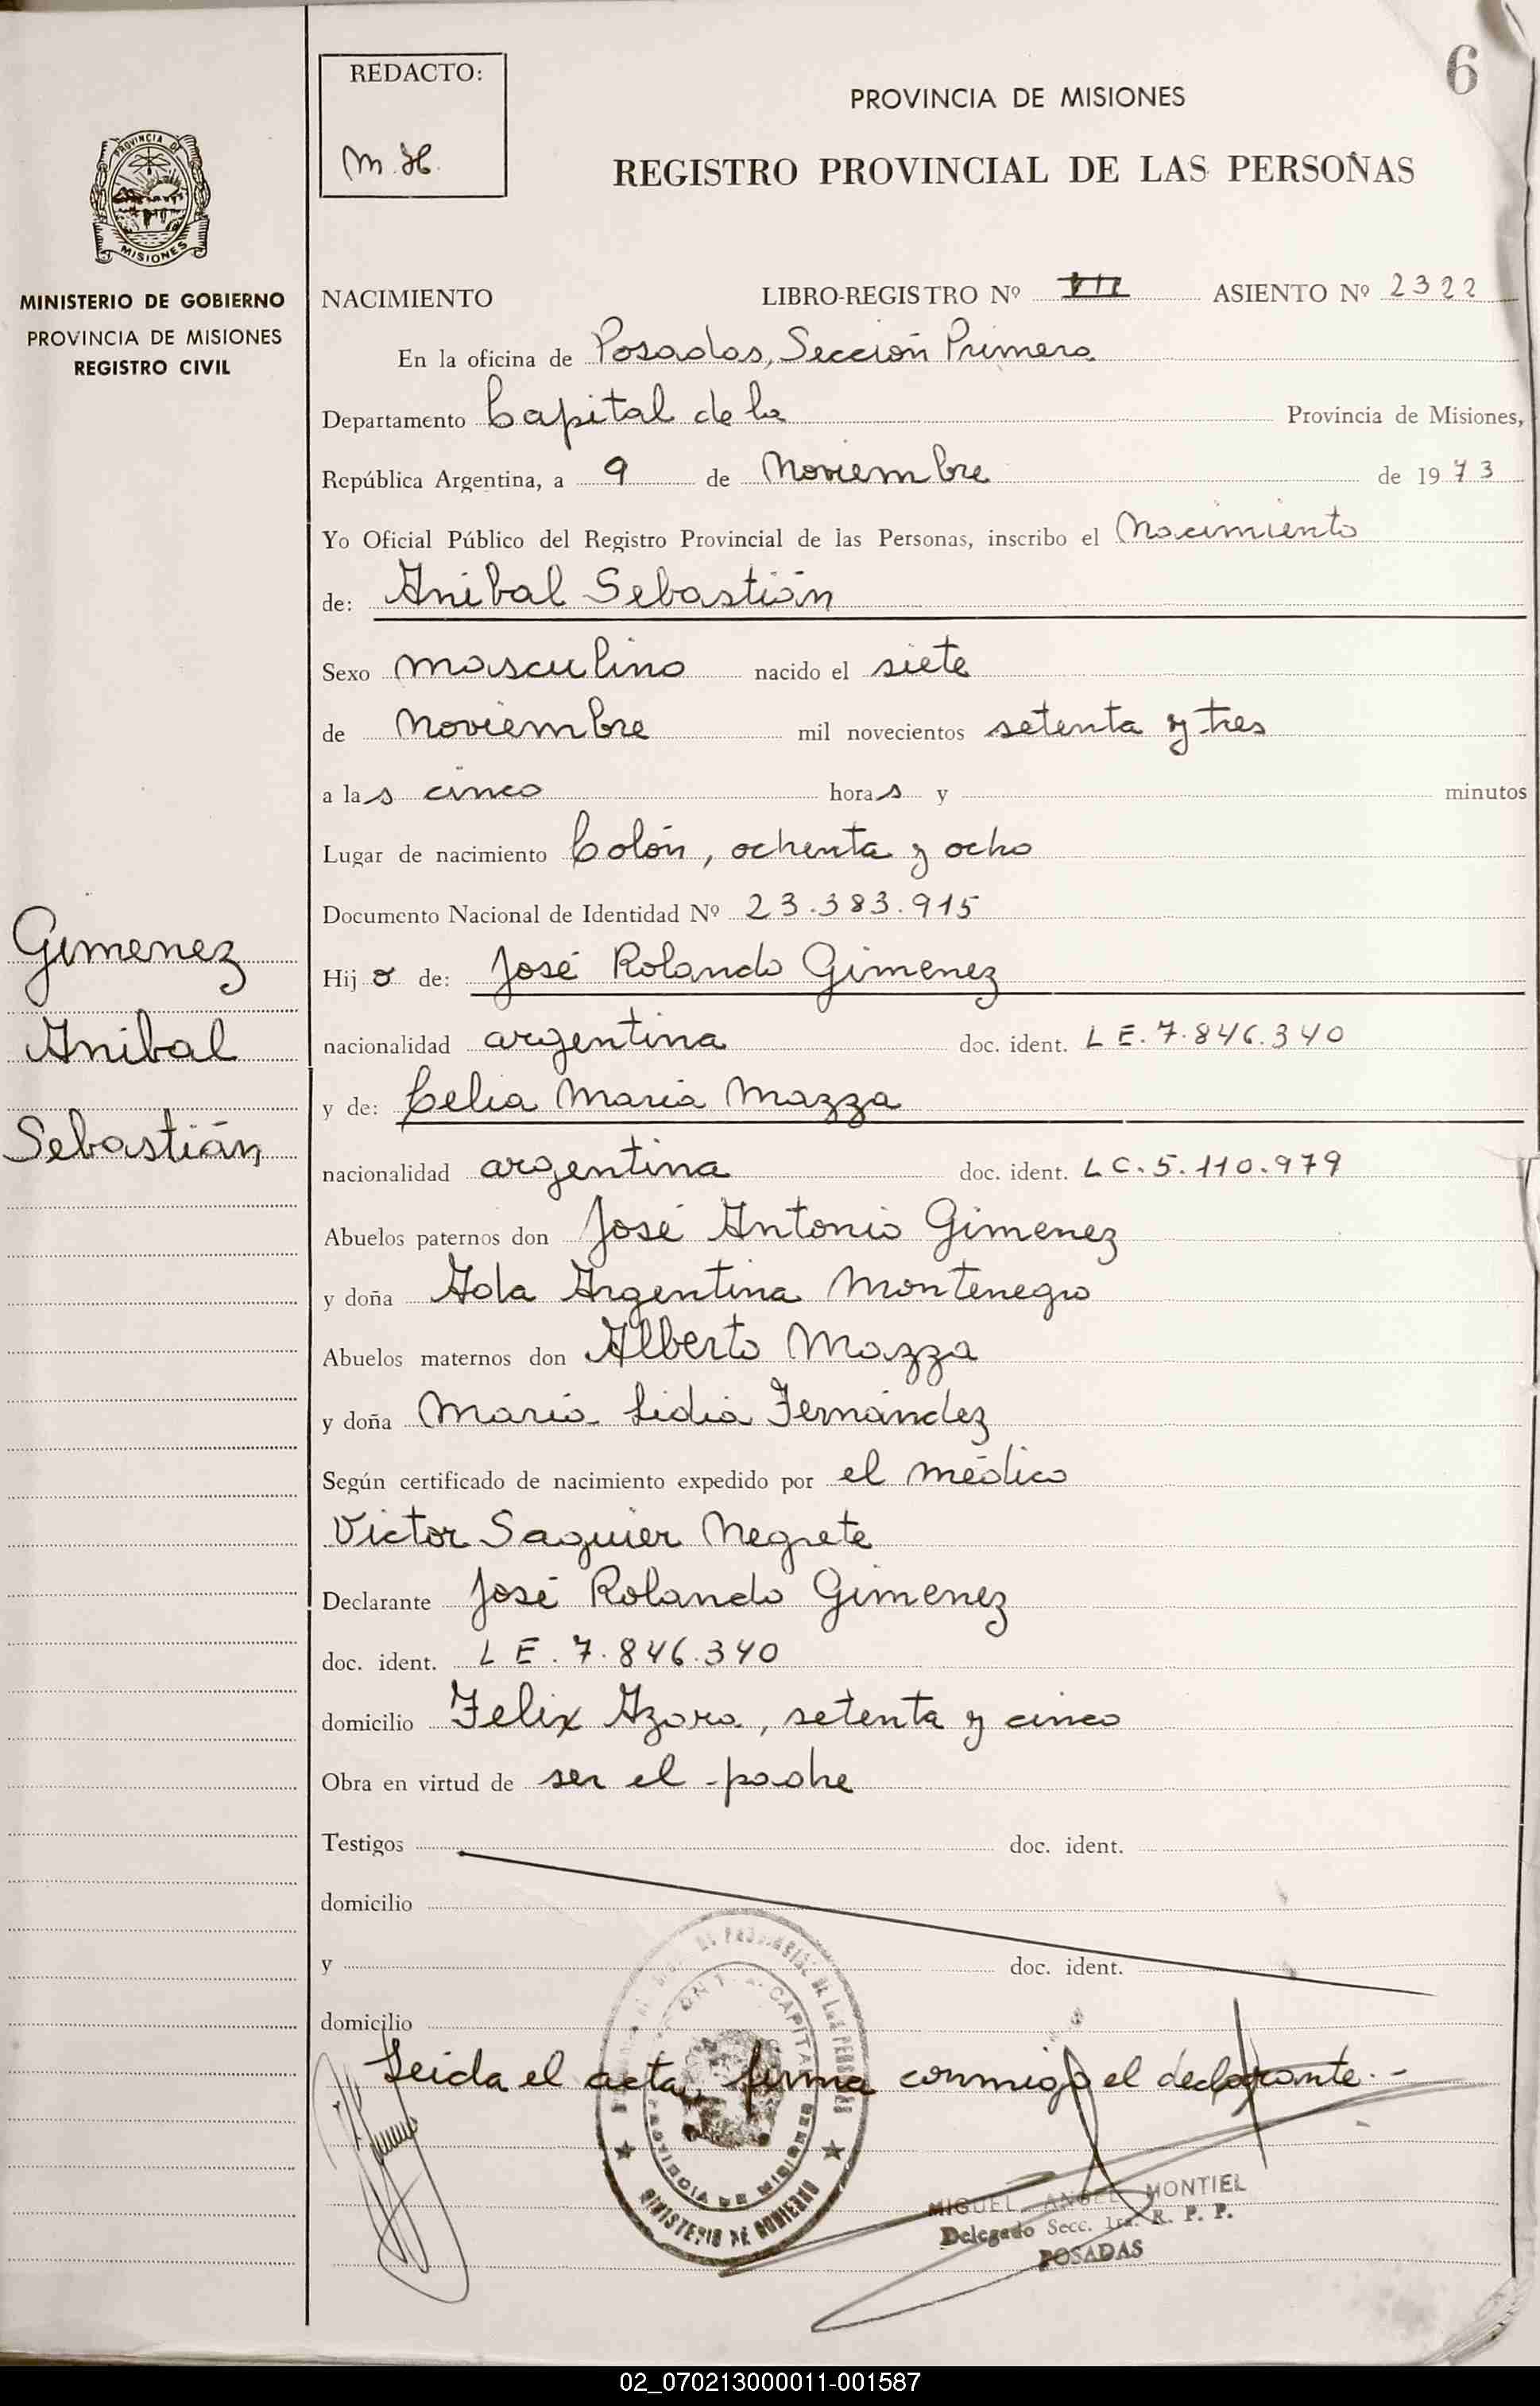 6
REDACTO:
M.H.
PROVINCIA DE MISIONES
REGISTRO PROVINCIAL DE LAS PERSONAS
PROVINCIA DE
MISIONES
MINISTERIO DE GOBIERNO
PROVINCIA DE MISIONES
REGISTRO CIVIL
NACIMIENTO LIBRO-REGISTRO Nº VII ASIENTO Nº 2322
En la oficina de Posadas, Sección Primera
Departamento Capital de la Provincia de Misiones,
República Argentina, a 9 de Noviembre de 1973
Yo Oficial Público del Registro Provincial de las Personas, inscribo el Nacimiento
de: Anibal Sebastián
Sexo masculino nacido el siete
de Noviembre mil novecientos setenta y tres
a las cinco horas y minutos
Lugar de nacimiento Colón, ochenta y ocho
Documento Nacional de Identidad Nº 23.383.915
Gimenez
Anibal
Sebastián
Hijo de: José Rolando Gimenez
nacionalidad argentina doc. ident. L E. 7.846.340
y de: Celia Maria Mazza
nacionalidad argentina doc. ident. L C. 5.110.979
Abuelos paternos don José Antonio Gimenez
y doña Argentina Montenegro
Abuelos maternos don Alberto Mazza
y doña María Lidia Fernández
Según certificado de nacimiento expedido por el médico
Victor Saguier Negrete
Declarante José Rolando Gimenez
doc. ident. L E. 7.846.340
domicilio Felix Azara, setenta y cinco
Obra en virtud de ser el padre
Testigos doc. ident.
domicilio
y doc. ident.
domicilio
Leida el acta, firma conmigo el declarante.-
PROVINCIA DE MISIONES
MINISTERIO DE GOBIERNO
MIGUEL ANGEL MONTIEL
Delegado Secc. 1ra. R. P. P.
POSADAS
02_070213000011-001587